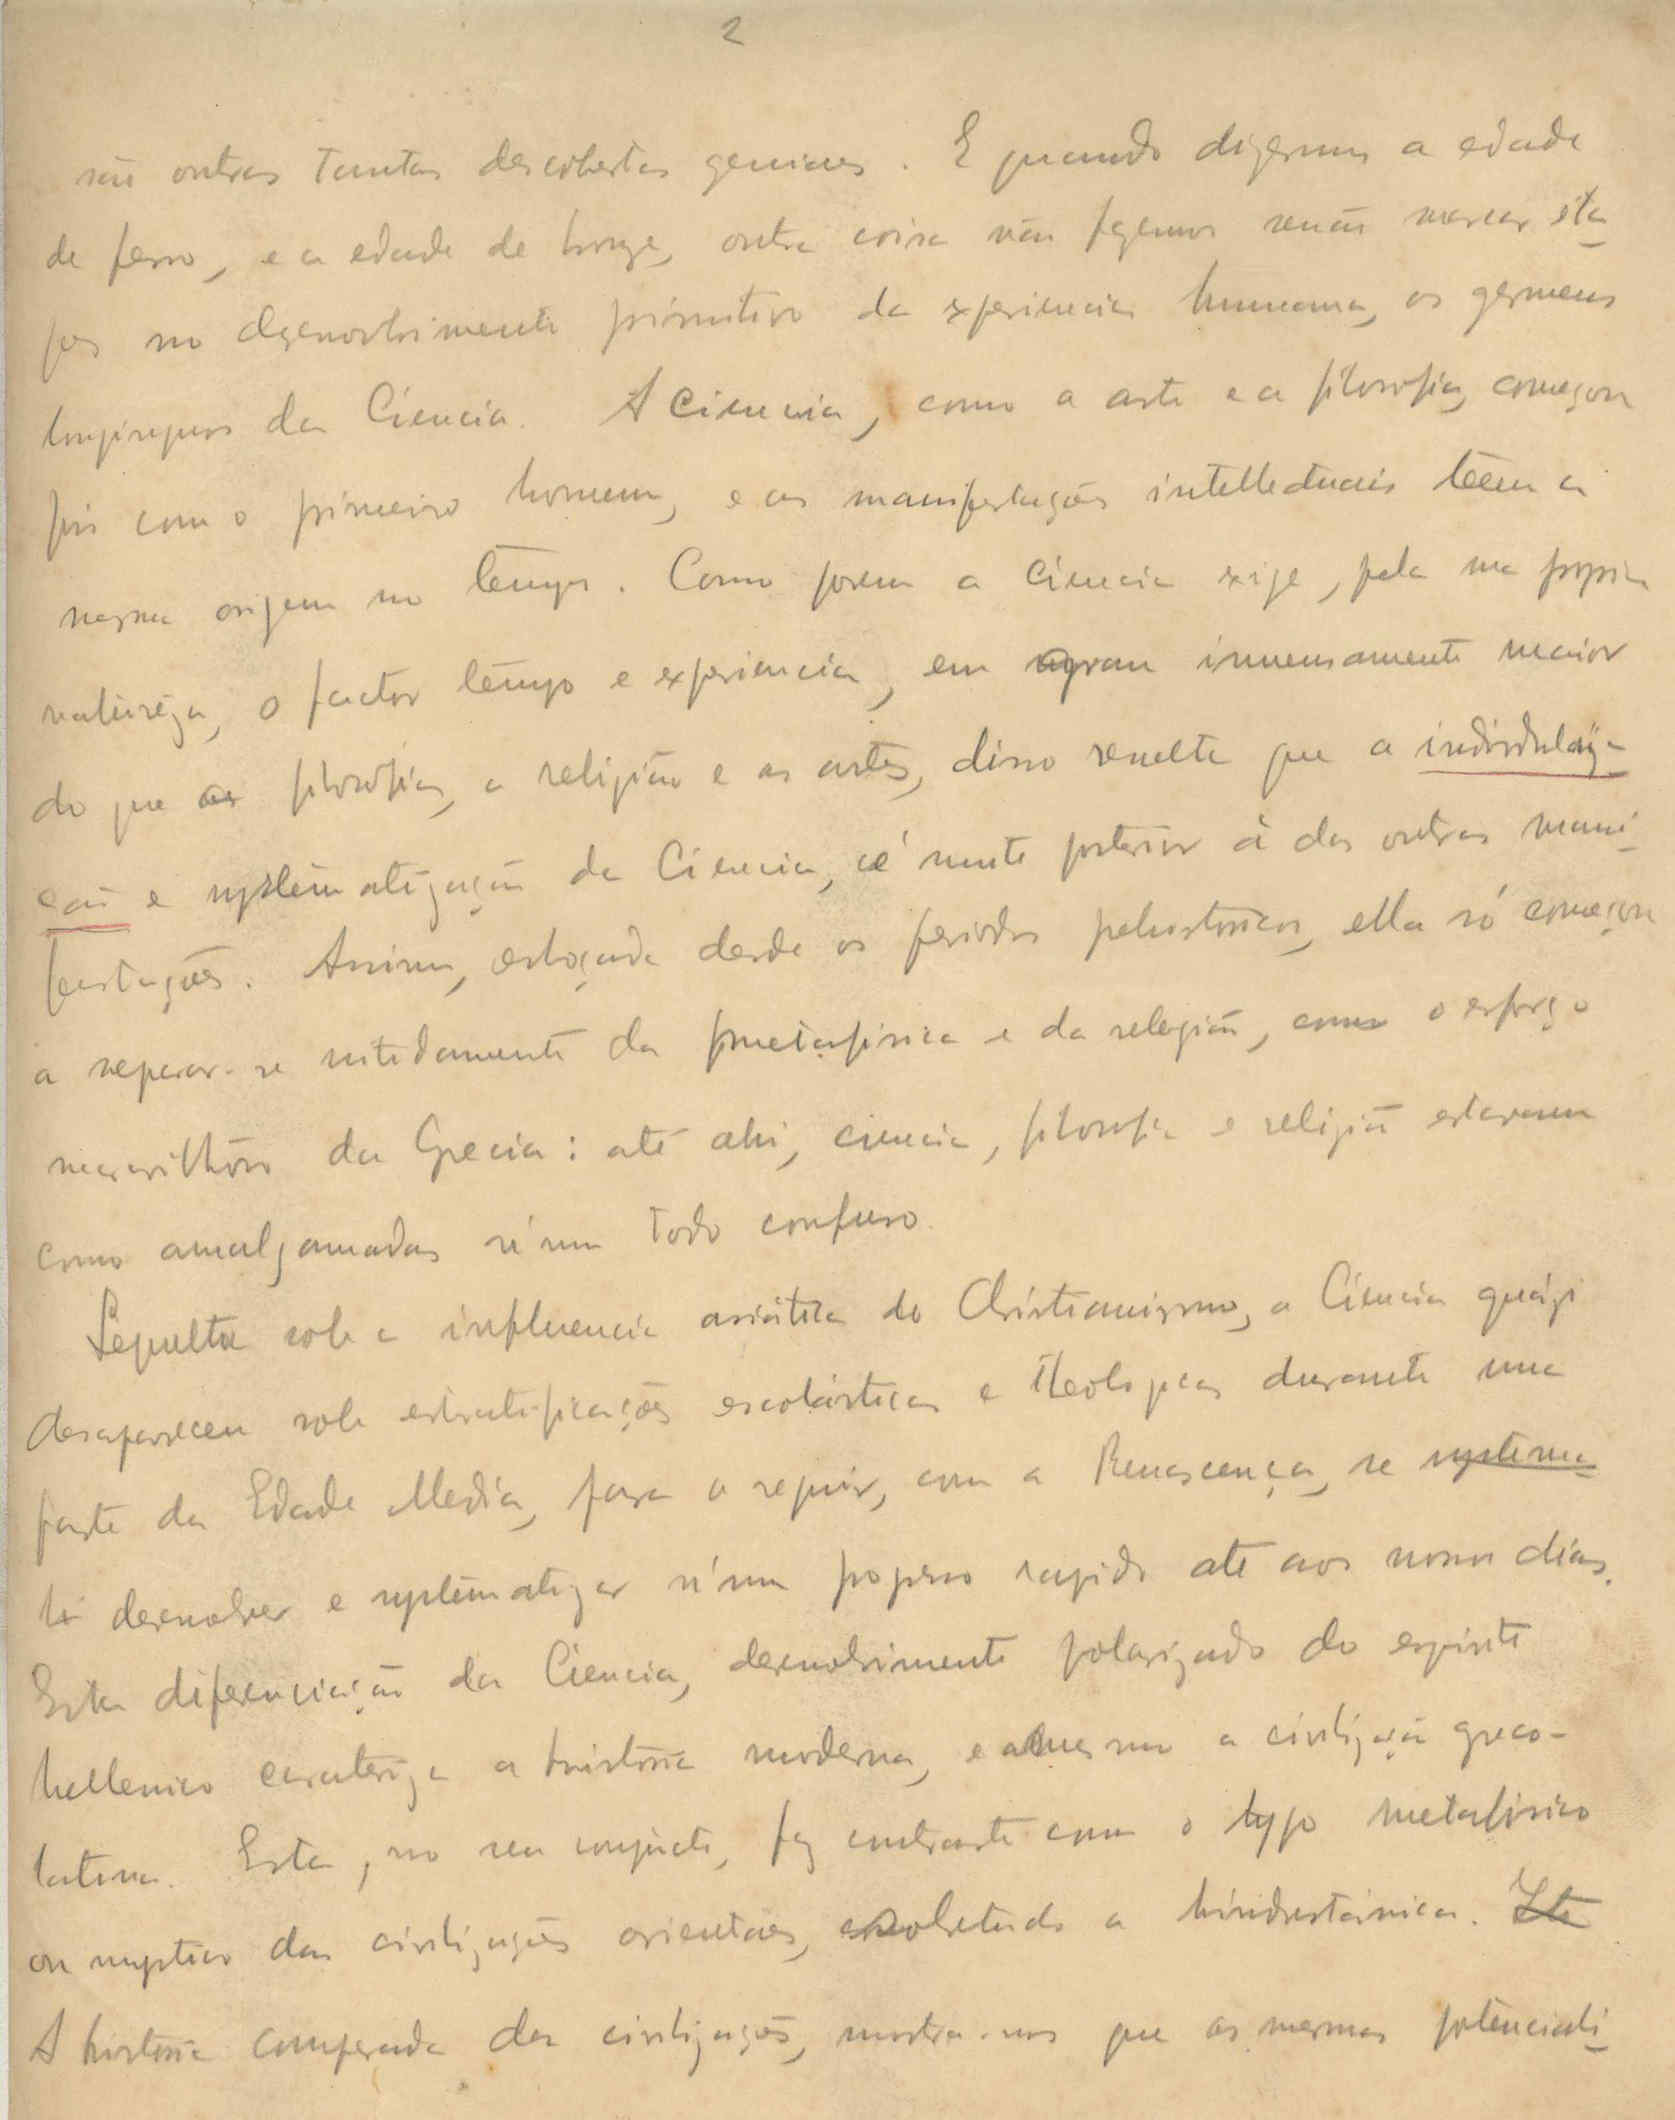 2
são outras tantas descobertas geniaes. E quando dizemos a edade
de ferro, e a edade de bronze, outra coisa não fazemos senão marcar eta-
pas no desenvolvimento primitivo da experiencia humana, os germens
longinquos da Ciencia. A Ciencia, como a arte e a filosofia, começou
pois com o primeiro homem, e as manifestações intellectuais têem a
mesma origem no tempo. Como porem a Ciencia exige, pela sua propria
natureza, o factor tempo e experiencia, em grau immensamente maior
do que a filosofia, a religião e as artes, disso resulta que a individualiza-
ção e systematização da Ciencia, é muito posterior á das outras mani-
festações. Assim, esboçada desde os periodos prehistoricos, ella só começou
a separar-se nitidamente da metafisica e da religião, com o esforço
maravilhoso da Grecia: até ahi, ciencia, filosofia e religião estavam
como amalgamadas n'um todo confuso.
Sepulta sob a influencia asiática do Christianismo, a Ciencia quázi
desapareceu sob estratificações escolásticas e theologicas durante uma
parte da Edade Media, para a seguir, com a Renascença, se systema-
ti desenvolver e systematizar n'um progresso rapido até aos nossos dias.
Esta diferenciação da Ciencia, desenvolvimento polarizado do espirito
hellenico carateriza a historia moderna, e mesmo a civilização greco-
latina. Esta, no seu conjuncto, faz contraste com o typo metafisico
ou mystico das civilizações orientaes, sobretudo a hindustánica. Esta
A historia comparada das civilizações, mostra-nos que as mesmas potenciali-